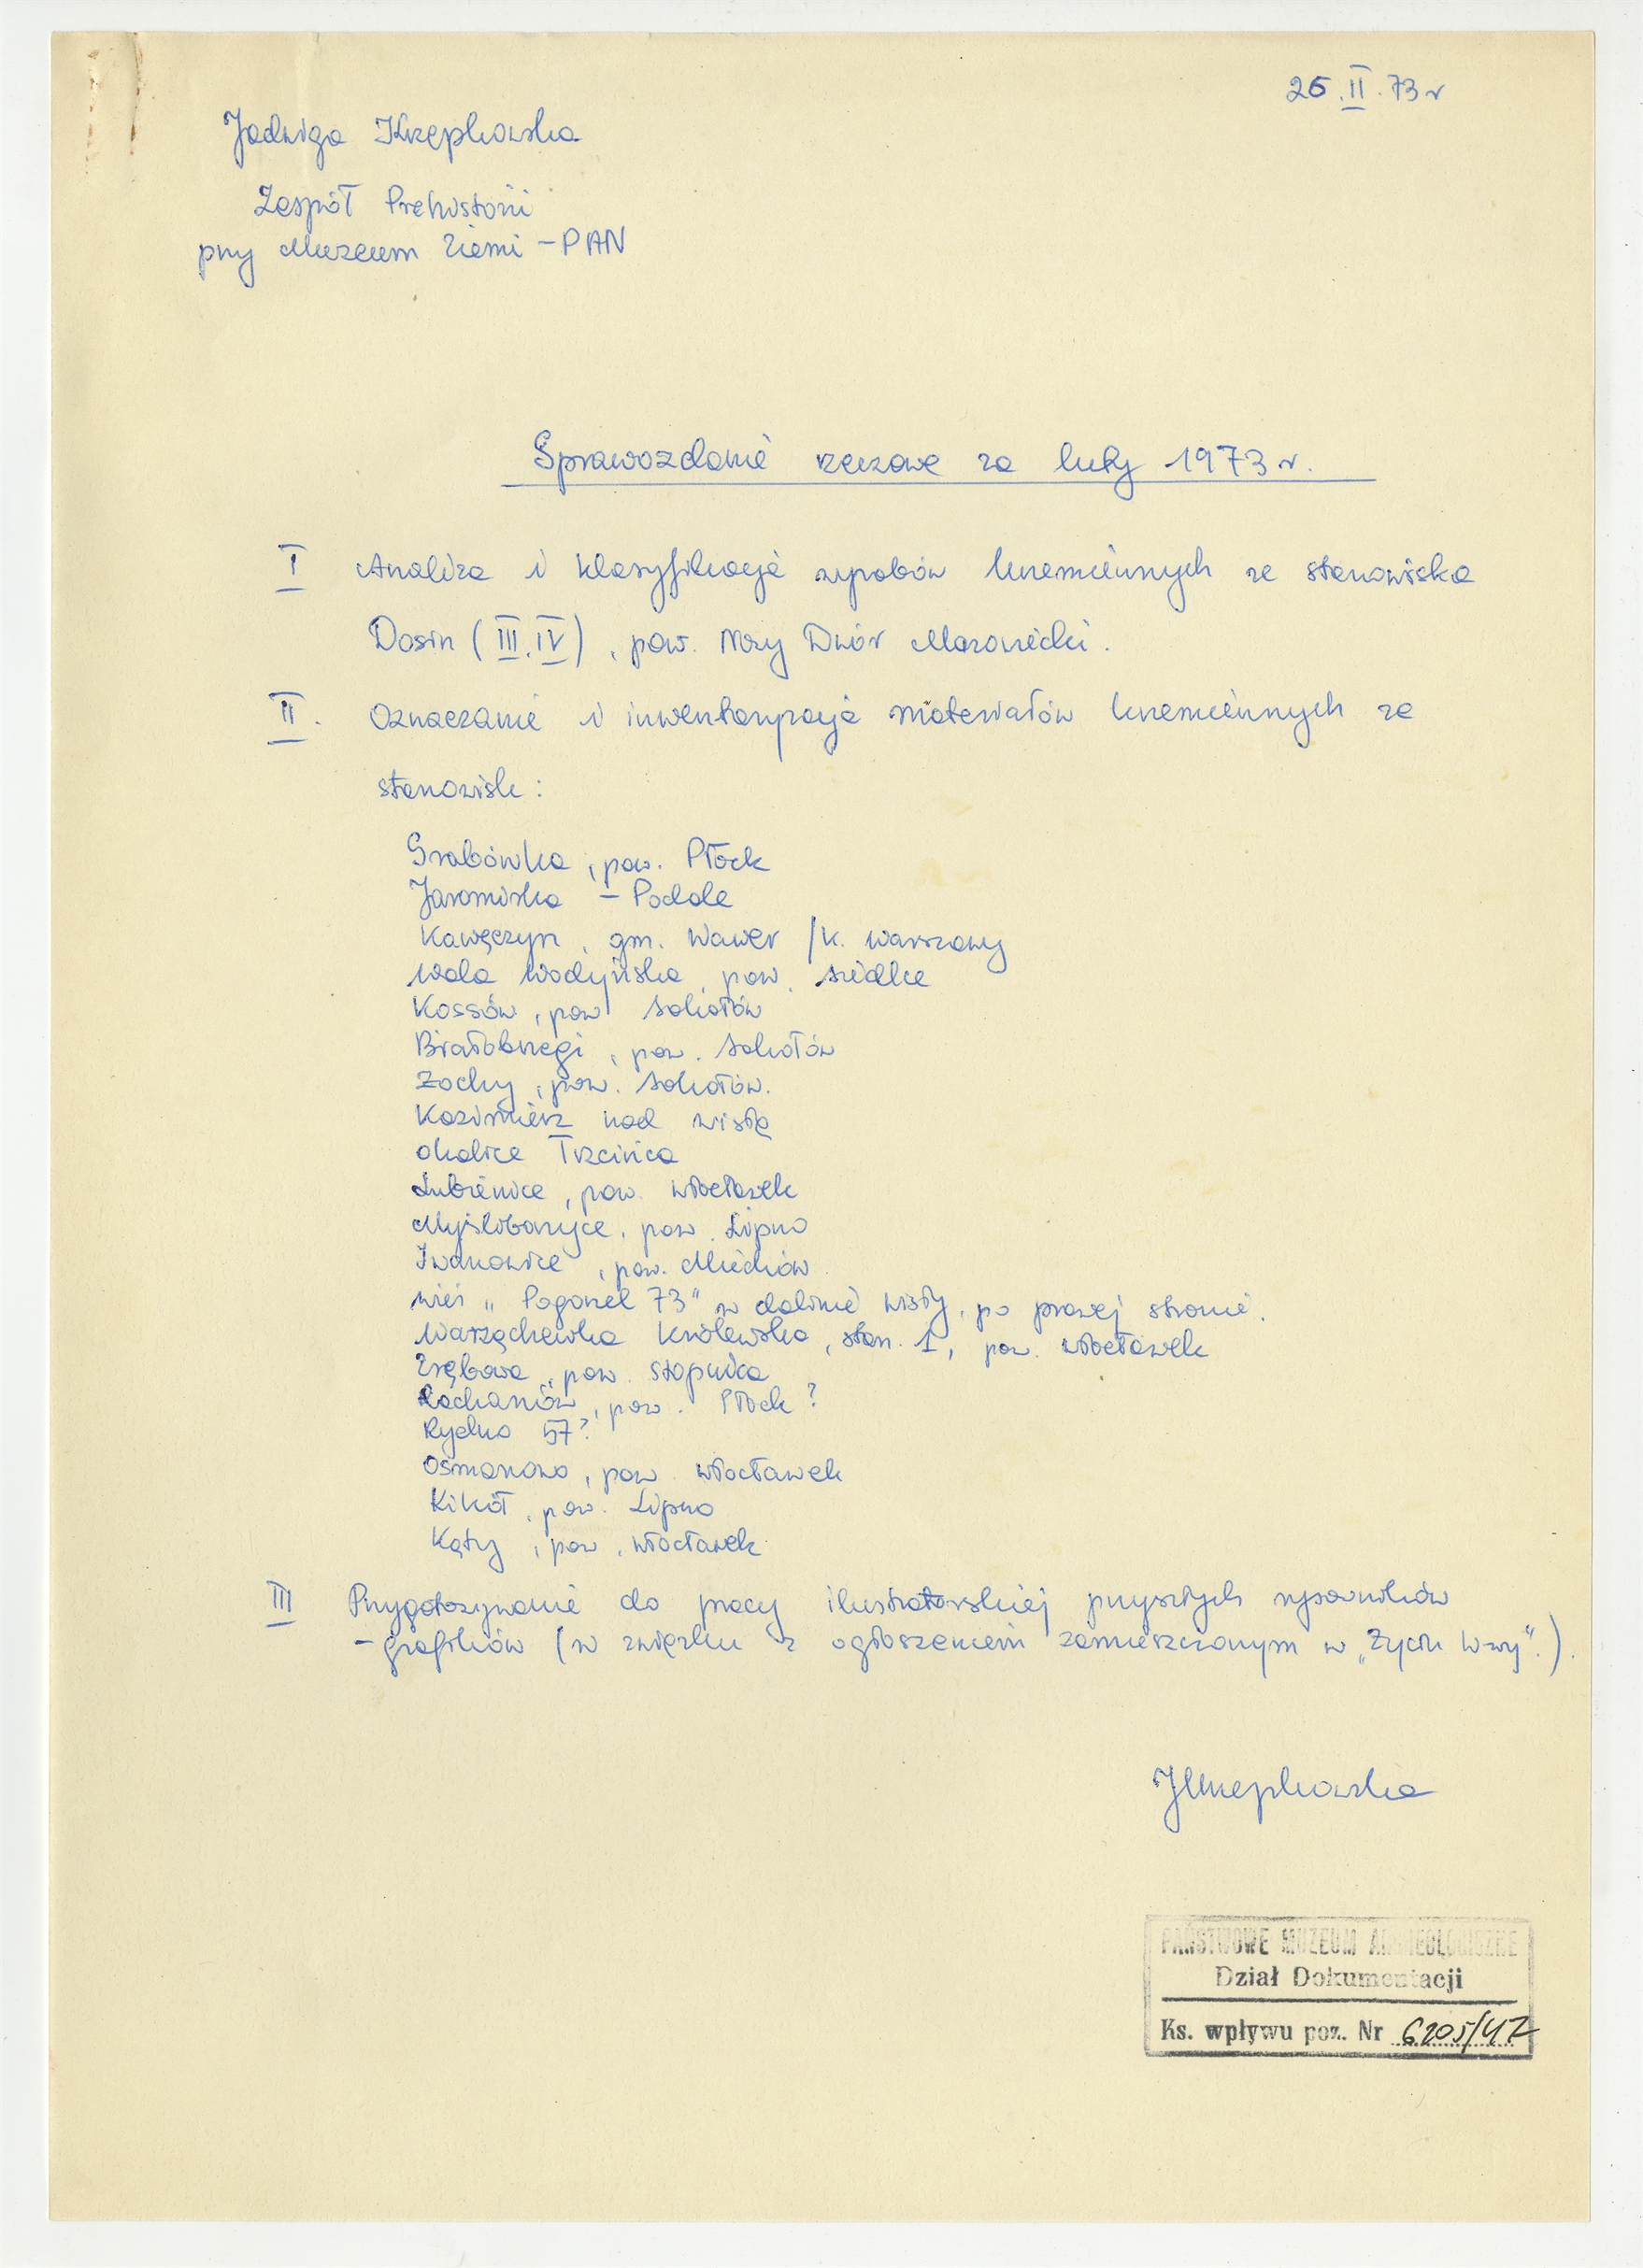 26.II.73 r
Jadwiga Krzepkowska
Zespół Prehistorii
przy Muzeum Ziemi - PAN
Sprawozdanie rzeczowe za luty 1973 r.
I Analiza i klasyfikacja wyrobów krzemiennych ze stanowiska
Dosin (III, IV), pow. Nowy Dwór Mazowiecki.
II. Oznaczanie i inwentaryzacja materiałów krzemiennych ze
stanowisk:
Grabówka, pow. Płock
Jaromirka - Podole
Kawęczyn, gm. Wawer /k. Warszawy
Wola Wodyńska, pow. Siedlce
Kossów, pow Sokołów
Białobrzegi, pow. Sokołów
Zochy, pow. Sokołów.
Kazimierz nad Wisłą
okolice Trzcińca
Lubienice, pow. Włocławek
Myśliborzyce, pow. Lipno
Iwanowice, pow. Miechów
wieś „Pogorzel 73" w dolinie Wisły, po prawej stronie.
Warząchewka Królewska, stan. 1, pow. Włocławek
Zrębowa, pow. Stopnica
pow. Płock?
Rydno 57?
Osmanowo, pow. Włocławek
Kikół, pow. Lipno
Kąty, pow. Włocławek
III Przygotowywanie do pracy ilustratorskiej przyszłych rysowników
- grafików (w związku z ogłoszeniem zamieszczonym w „Życiu W-wy".).
JKrzepkowska
PAŃSTWOWE MUZEUM ARCHEOLOGICZNE
Dział Dokumentacji
Ks. wpływu poz. Nr 6205/47